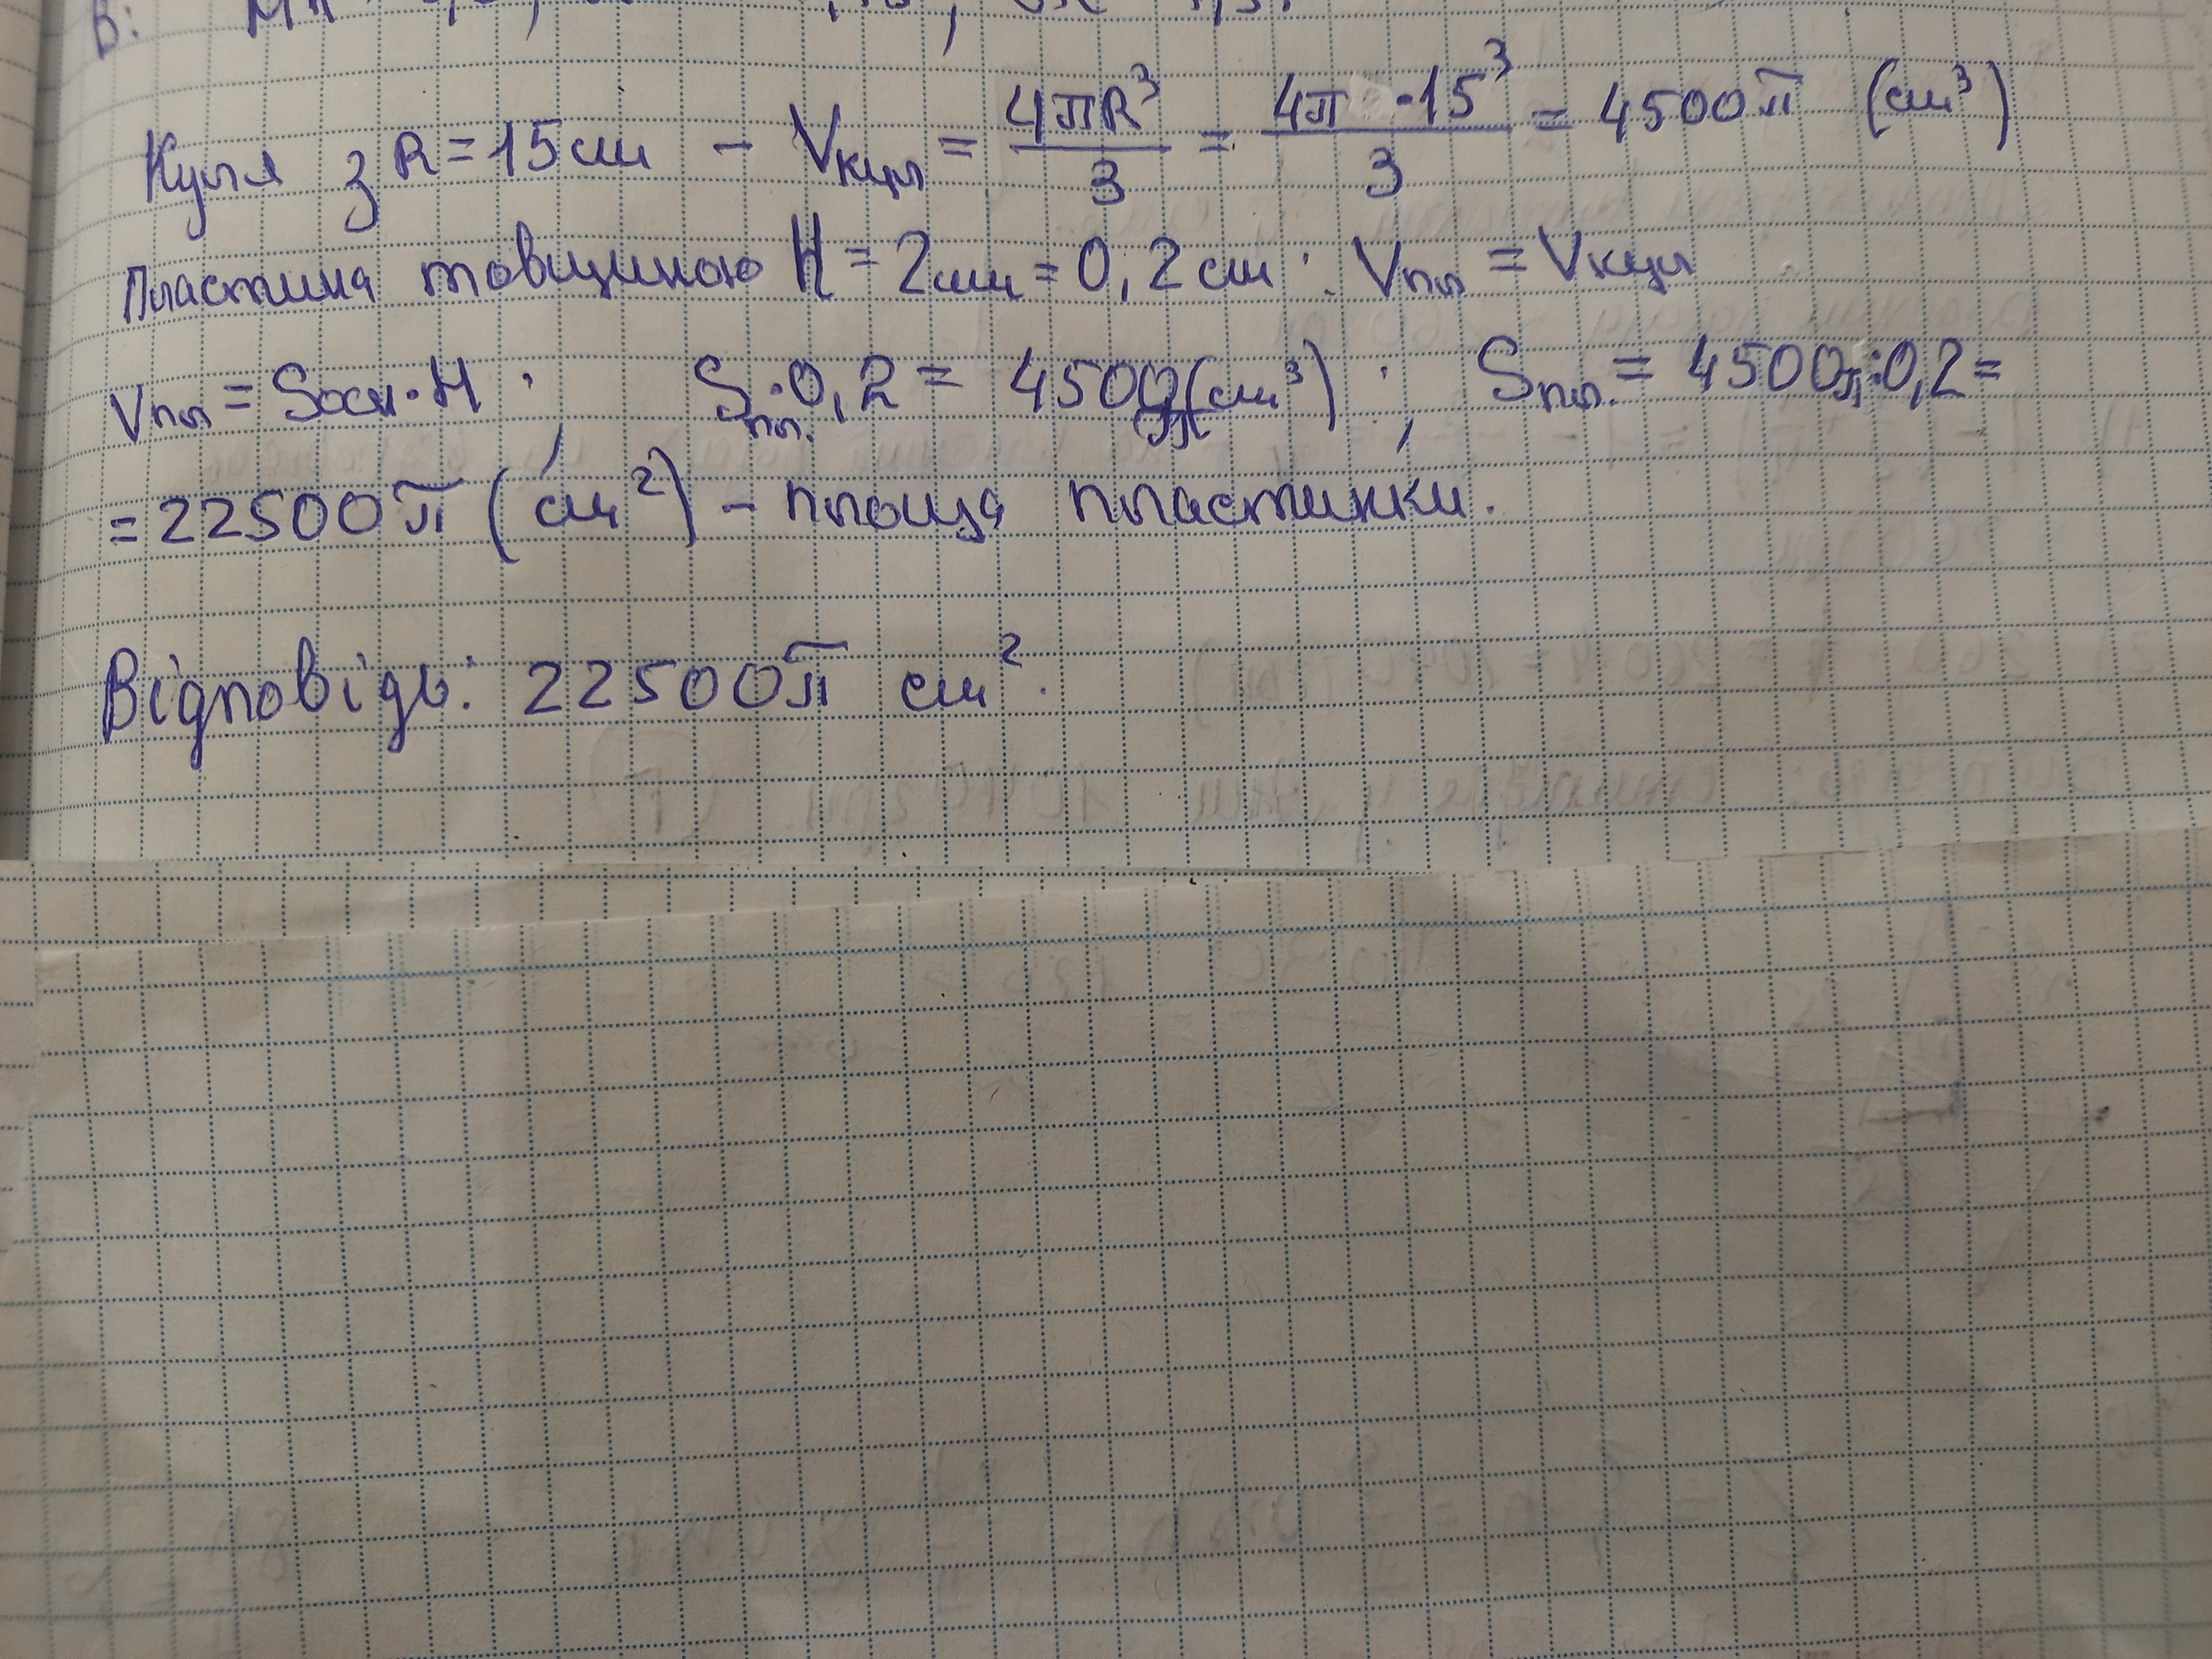 В:
Куля з R = 15 см – Vкул = 4πR³/3 = 4π·15³/3 = 4500π (см³)
Пластина товщиною H = 2мм = 0,2 см ; Vпл = Vкул
Vпл = Sосн·H ; Sпл.·0,2 = 4500π(см³) ; Sпл. = 4500π:0,2 =
= 22500π (см²) – площа пластинки.
Відповідь: 22500π см².